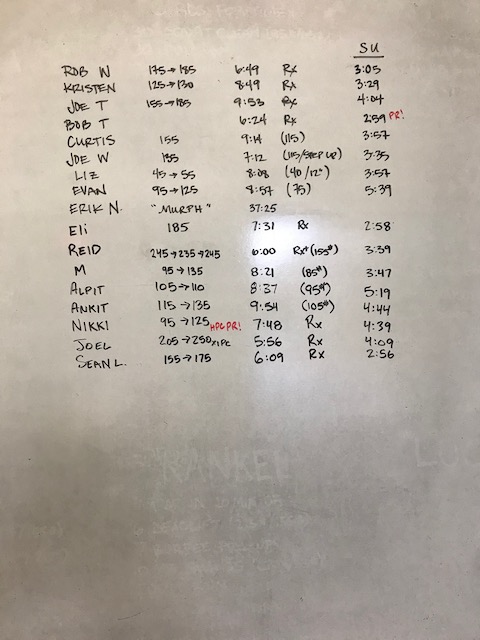 SU
ROB W 175→185 6:49 Rx 3:05
KRISTEN 125→130 8:49 Rx 3:29
JOE T 155→185 9:53 Rx 4:04
BOB T 6:24 Rx 2:59 PR!
CURTIS 155 9:14 (115) 3:57
JOE W 185 7:12 (115/STEP UP) 3:35
LIZ 45→55 8:08 (40/12") 3:57
EVAN 95→125 8:57 (75) 5:39
ERIK N. "MURPH" 37:25
Eli 185 7:31 Rx 2:58
REID 245→235→245 6:00 Rx+(155#) 3:39
M 95→135 8:21 (85#) 3:47
ALPIT 105→110 8:37 (95#) 5:19
ANKIT 115→135 9:54 (105#) 4:44
NIKKI 95→125 HPC PR! 7:48 Rx 4:39
JOEL 205→250x1PC 5:56 Rx 4:09
SEAN L. 155→175 6:09 Rx 2:56
RANKEL